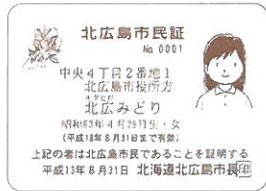 北広島市民証
No. 0001
中央4丁目2番地1
北広島市役所方
北広みどり
昭和63年4月29日生・女
(平成18年8月31日まで有効)
上記の者は北広島市民であることを証明する
平成13年8月31日 北海道北広島市長印